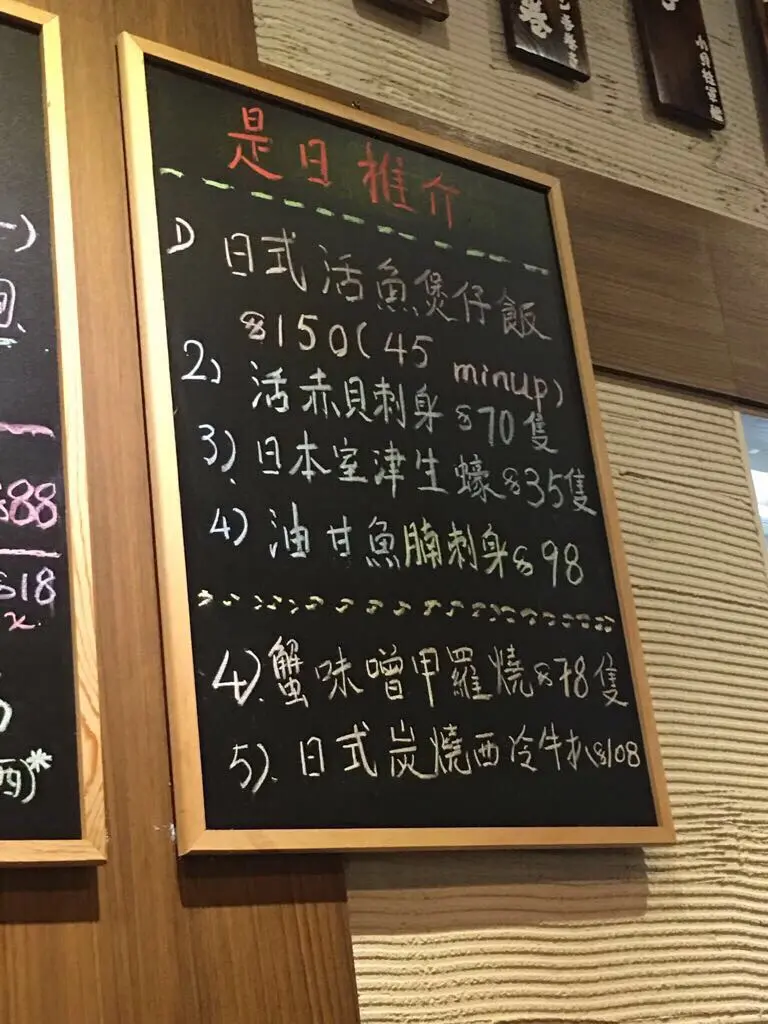 是日推介
1) 日式活魚煲仔飯
$150(45 minup)
2) 活赤貝刺身 $70隻
3) 日本室津生蠔 $35隻
4) 油甘魚腩刺身 $98
4) 蟹味噌甲羅燒 $78隻
5) 日式炭燒西冷牛扒 $108
$88
$18
西)*
卷
小貝柱軍艦